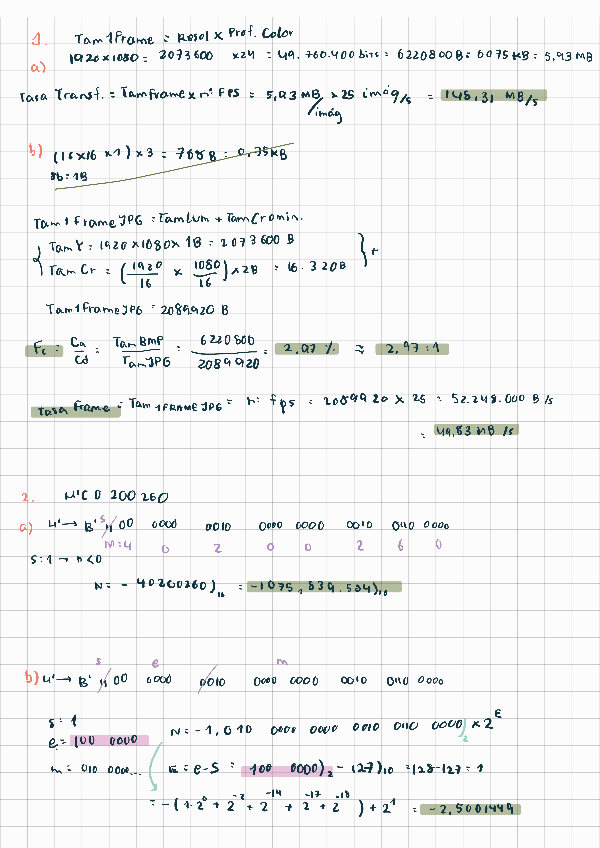 1. Tam 1 Frame = Resol x Prof. Color
a) 1920x1080 = 2073600 x24 = 49.760.400 bits = 6220800 B = 6075 KB = 5,93 MB
Tasa Transf. = Tamframe x nº FPS = 5,93 MB/imág x 25 imág/s = 148,31 MB/s
b) (16x16 x1) x 3 = 768 B = 0,75 KB
8b = 1B
Tam 1 frame JPG = Tam Lum + Tam Cromin.
Tam Y = 1920 x1080 x 1B = 2073600 B
Tam Cr = (1920/16 x 1080/16) x 2B = 16.320B } +
Tam 1 frame JPG = 2089920 B
Fc = Ca/Cd = Tam BMP/Tam JPG = 6220800/2089920 = 2,97 % ≈ 2,97:1
Tasa frame = Tam 1 FRAME JPG = nº fps = 2089920 x 25 = 52.248.000 B/s
= 49,83 MB/s
2. H'C0 200 260
a) H' → B' 1/100 0000 0010 0000 0000 0010 0110 0000
S
M=4 0 2 0 0 2 6 0
S = 1 → n<0
N = - 40200260)16 = -1075,839.584)10
s e m
b) H' → B' 1/100 0000 0/010 0000 0000 0010 0110 0000
s = 1
N = -1,010 0000 0000 0010 0110 0000)2 x 2^E
e = 100 0000
m = 010 0000...
E = e-S = 100 0000)2 - 127)10 = 128-127 = 1
= -(1·2^0 + 2^-2 + 2^-14 + 2^-17 + 2^-18) + 2^1 = -2,5001449